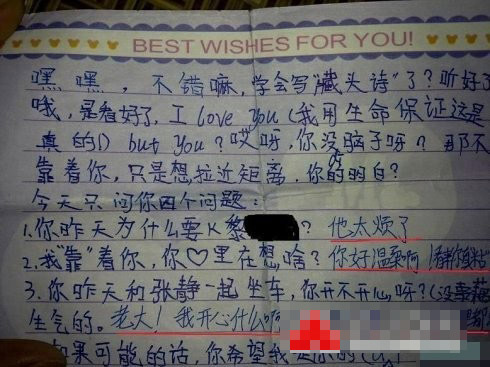 BEST WISHES FOR YOU!
嘿嘿，不错嘛，学会写"藏头诗"了？听好了
哦，是看好了，I love you（我用生命保证这是
真的！）but you？哎呀，你没脑子呀？那不
靠着你，只是想拉近距离，你的明白？
今天只问你四个问题：
1.你昨天为什么要K黎？他太烦了
2.我"靠"着你，你♡里在想啥？你好温柔啊！
3.你昨天和张静一起坐车，你开不开心呀？（没
生气的。老大！我开心什么啊
如果可能的话，你希望我是你的（